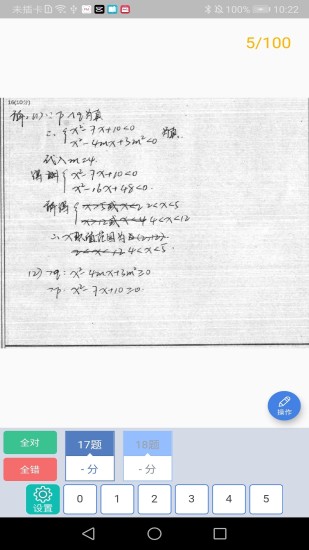 未插卡 100% 10:22
5/100
16(10分)
解:(1)∵ p∧q为真
∴ { x²-7x+10<0
x²-4mx+3m²<0 为真.
代入m=4.
得 { x²-7x+10<0
x²-16x+48<0.
解得 { 2<x<5
4<x<12
∴ x取值范围为
4<x<5.
(2) ¬q: x²-4mx+3m²≥0
¬p: x²-7x+10≥0.
操作
全对 17题 18题
全错 -分 -分
设置 0 1 2 3 4 5